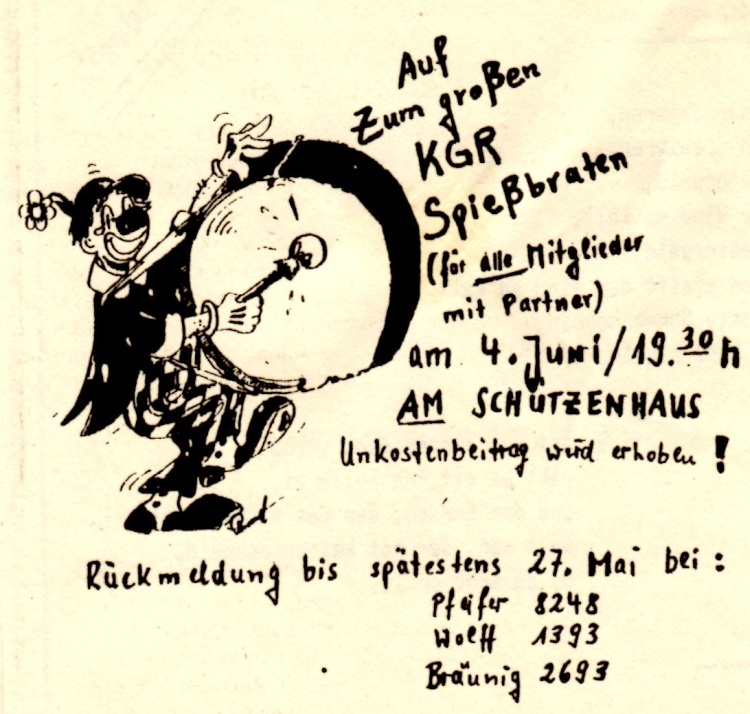 Auf
Zum großen
KGR
Spießbraten
(för alle Mitglieder
mit Partner)
am 4. Juni / 19.30 h
AM SCHÜTZENHAUS
Unkostenbeitrag wird erhoben !
Rückmeldung bis spätestens 27. Mai bei :
Pfeifer 8248
Wolff 1393
Bräunig 2693